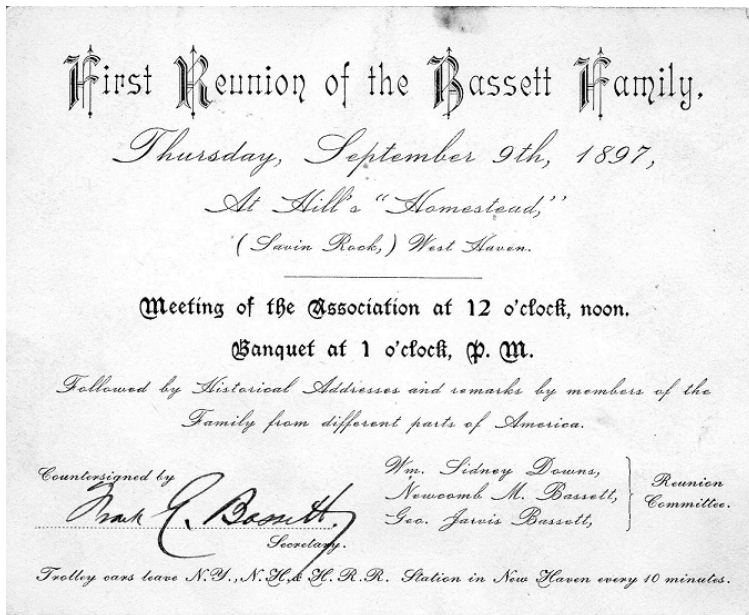 First Reunion of the Bassett Family.
Thursday, September 9th, 1897,
At Hill's "Homestead,"
(Savin Rock,) West Haven.
Meeting of the Association at 12 o'clock, noon.
Banquet at 1 o'clock, P. M.
Followed by Historical Addresses and remarks by members of the
Family from different parts of America.
Countersigned by
Frank G. Bassett,
Secretary.
Wm. Sidney Downs,
Newcomb M. Bassett,
Geo. Jarvis Bassett,
Reunion
Committee.
Trolley cars leave N.Y., N.H. & H.R.R. Station in New Haven every 10 minutes.